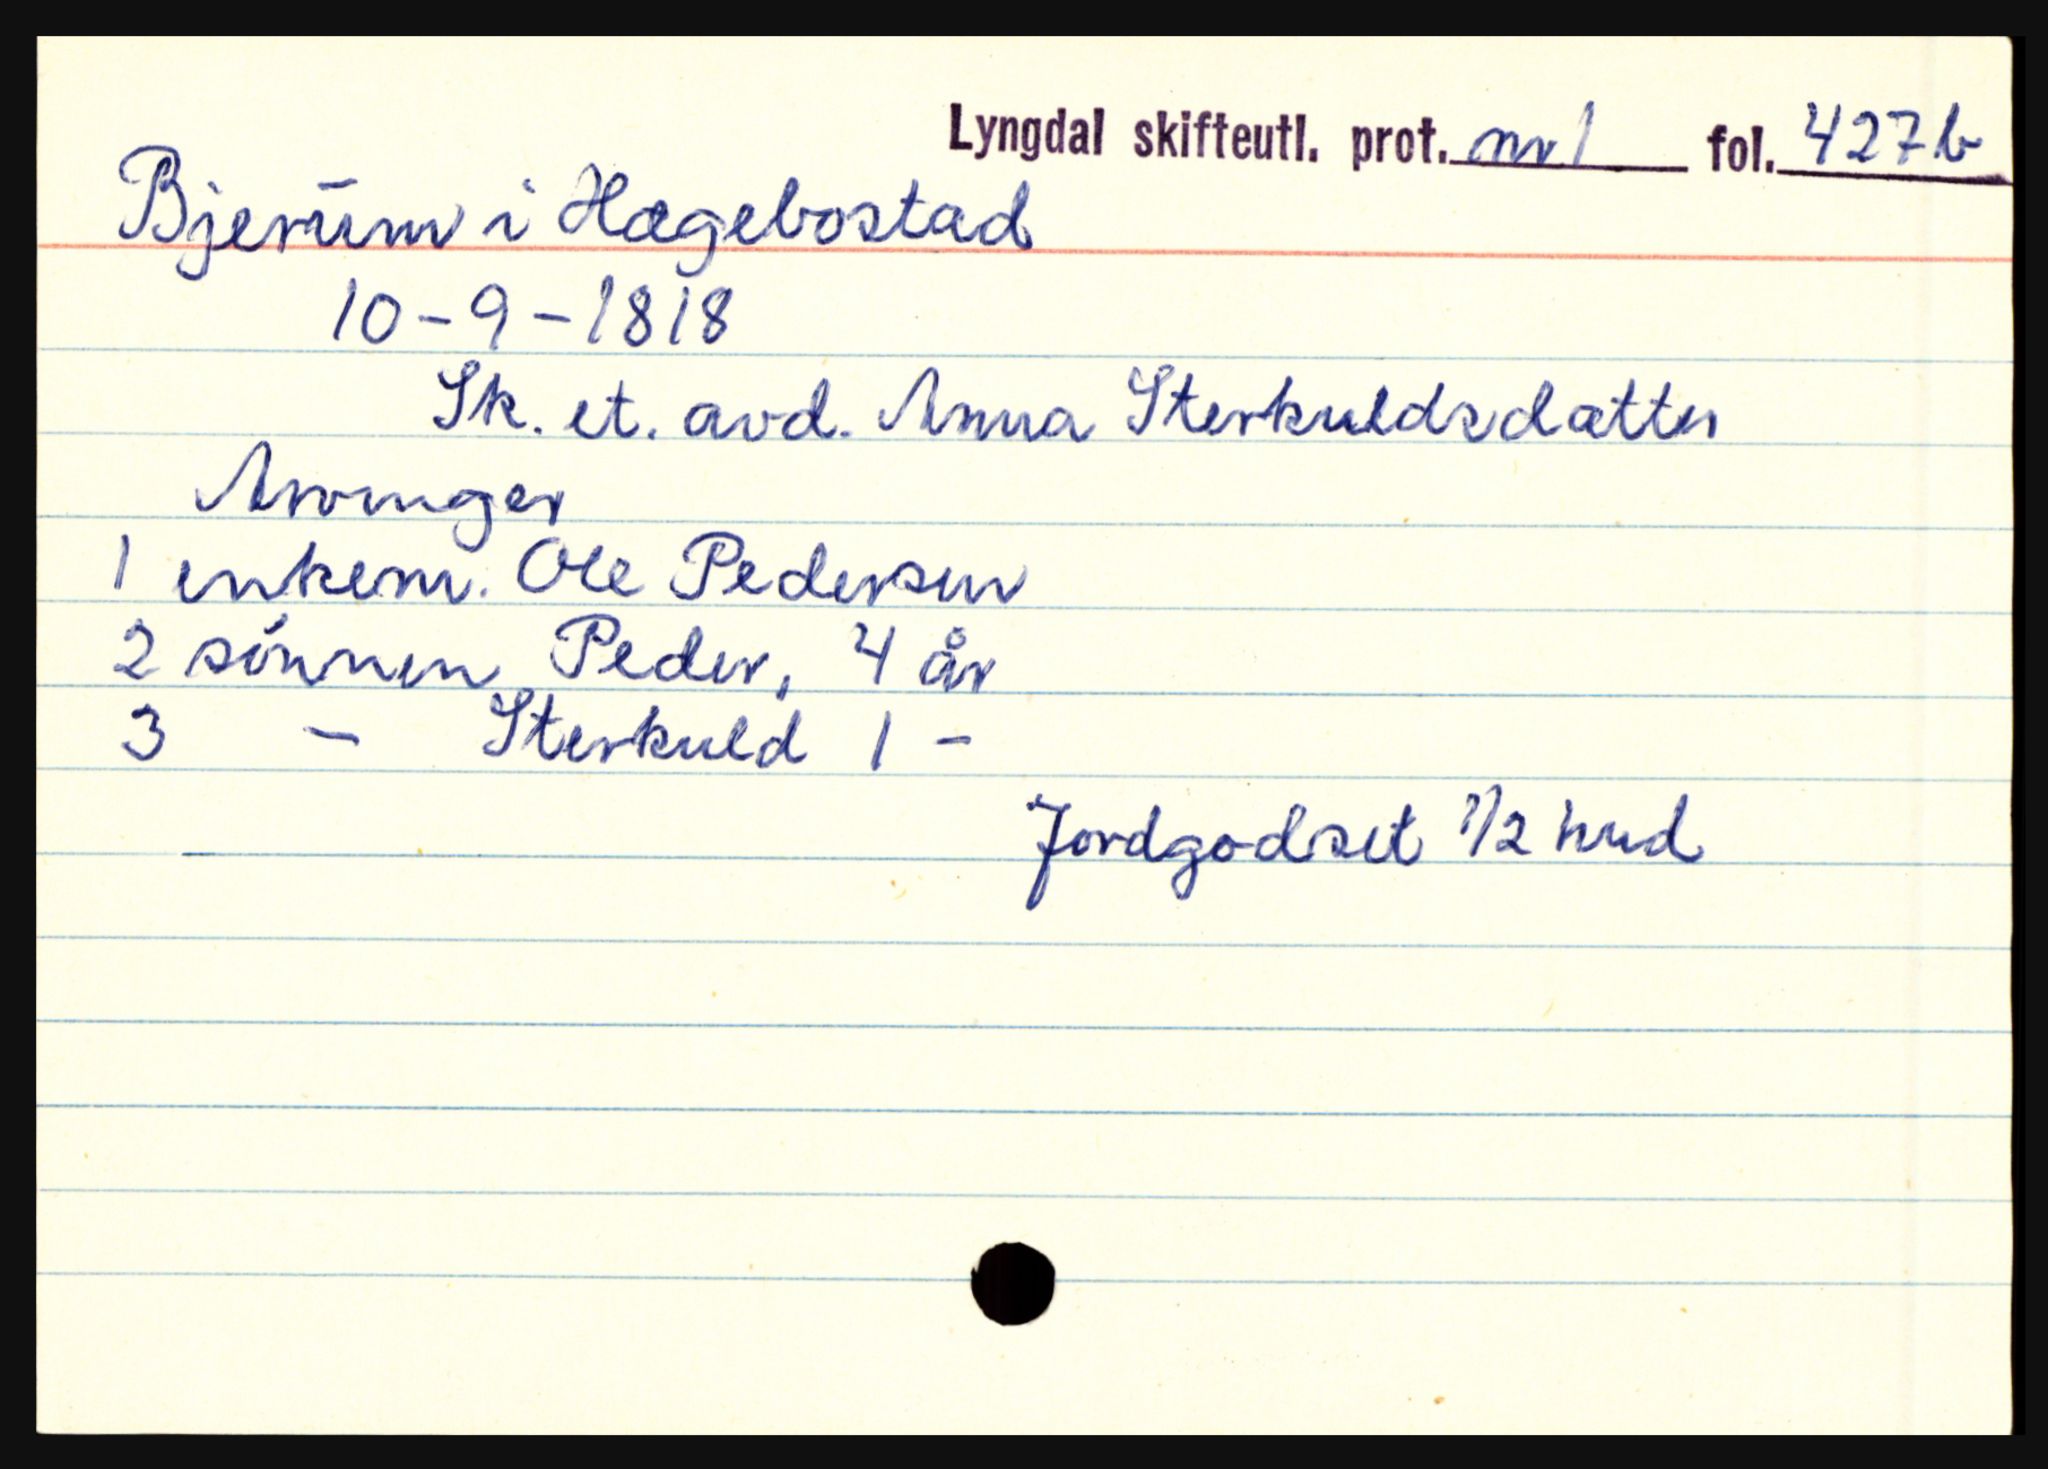 Lyngdal skifteutl. prot. nr 1 fol. 427b
Bjerūm i Hægebostad
10-9-1818
Sk. et. avd. Anna Sterkuldsdatter
Arvinger
1 enkem. Ole Pedersen
2 sønnen Peder, 4 år
3 - Sterkuld 1 -
Jordgodset 1/2 hud